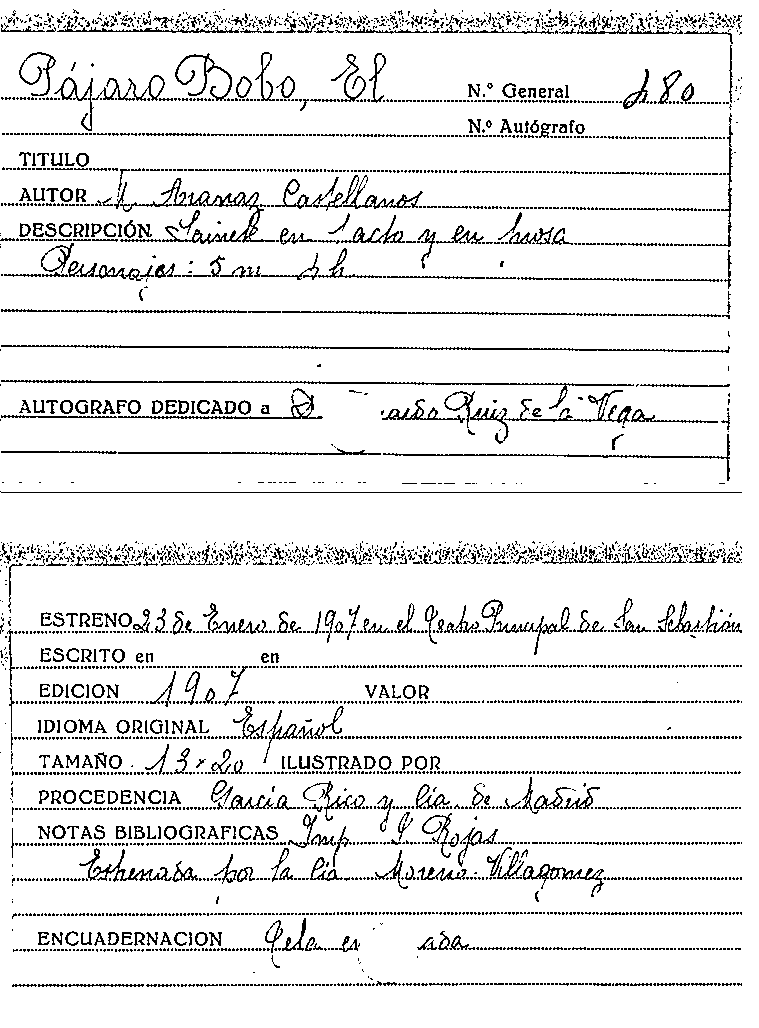 Pájaro Bobo, El
N.º General 480
N.º Autógrafo
TITULO
AUTOR M. Aranaz Castellanos
DESCRIPCIÓN Sainete en 1 acto y en prosa
Personajes: 5 m 4 h
AUTOGRAFO DEDICADO a D. Ruiz de la Vega
ESTRENO 23 de Enero de 1907 en el Teatro Principal de San Sebastián
ESCRITO en en
EDICION 1907 VALOR
IDIOMA ORIGINAL Español
TAMAÑO 13 x 20 ILUSTRADO POR
PROCEDENCIA García Rico y Cía. de Madrid
NOTAS BIBLIOGRAFICAS Imp S. Rojas
Estrenada por la Cía Moreno-Villagomez
ENCUADERNACION Tela